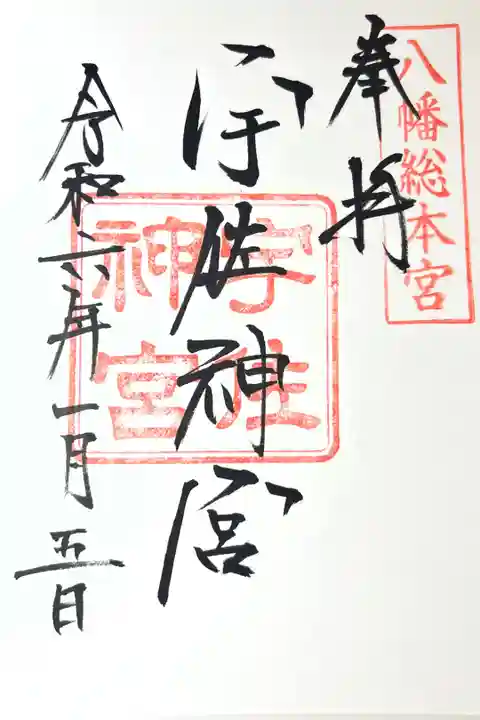 八幡総本宮
奉拝
宇佐神宮
宇佐
神宮
令和六年一月五日